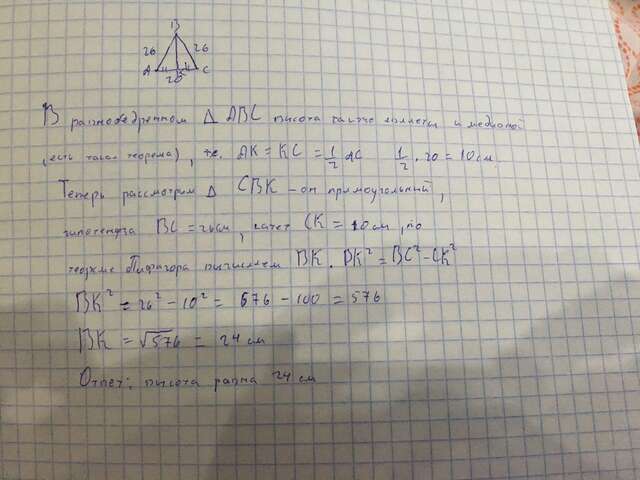 B
26
26
A
K
C
20
В равнобедренном Δ ABC высота также является и медианой
(есть такая теорема), т.е. AK = KC = 1/2 AC 1/2 · 20 = 10 см
Теперь рассмотрим Δ CBK – он прямоугольный,
гипотенуза BC = 26 см, катет CK = 10 см, по
теореме Пифагора вычисляем BK. BK² = BC² - CK²
BK² = 26² - 10² = 676 - 100 = 576
BK = √576 = 24 см
Ответ: высота равна 24 см